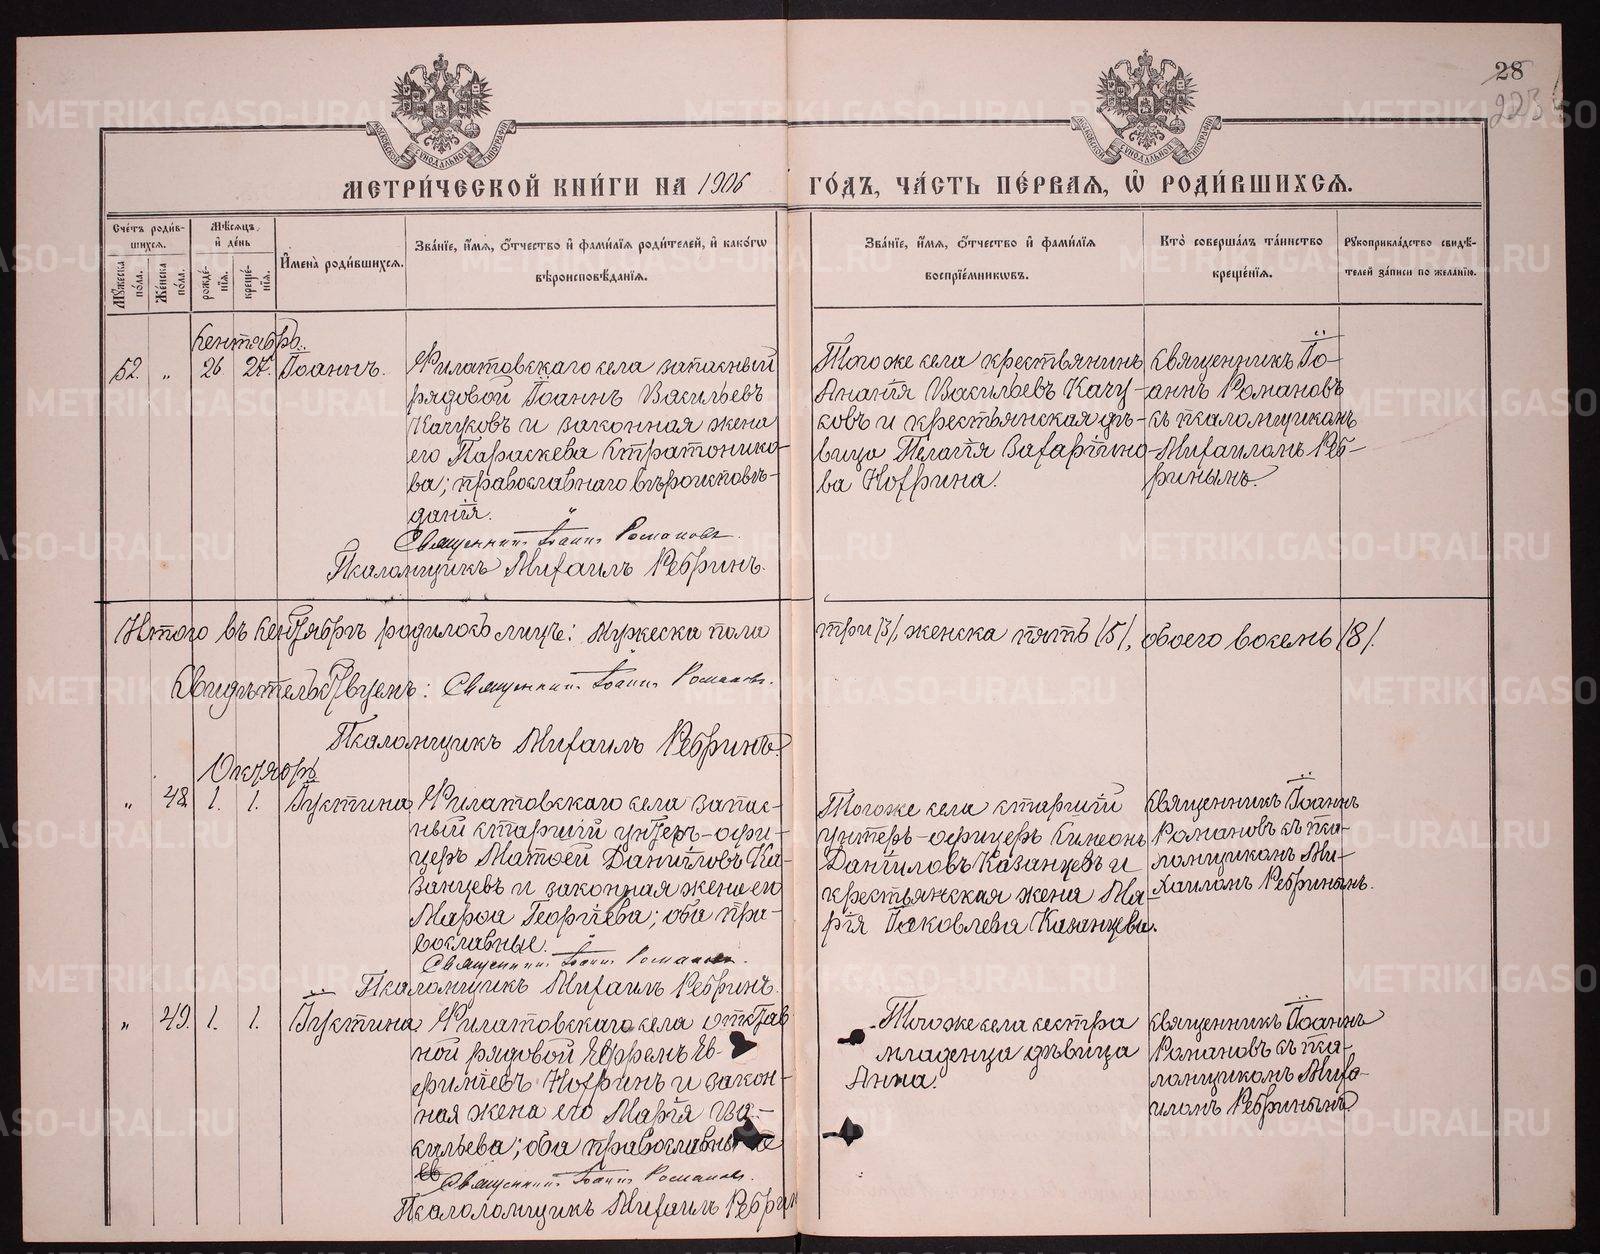 28
223
МОСКОВСКОЙ СѴНОДАЛЬНОЙ ТИПОГРАФІИ
МОСКОВСКОЙ СѴНОДАЛЬНОЙ ТИПОГРАФІИ
МЕТРИ́ЧЕСКОЙ КНИ́ГИ НА 1906 ГО́ДЪ, ЧА́СТЬ ПЕ́РВАѦ, Ѡ҆ РОДИ́ВШИХСѦ.
Сче́тъ роди́в-
шихсѧ.
Мꙋ́жеска по́ла.
Же́нска по́ла.
Мѣ́сѧцъ
и҆ де́нь
рожде́-
нїѧ.
креще́-
нїѧ.
И҆мена̀ роди́вшихсѧ.
Зва́нїе, и҆́мѧ, ѻ҆́тчество и҆ фами́лїѧ роди́телей, и҆ како́гѡ
вѣроисповѣ́данїѧ.
Зва́нїе, и҆́мѧ, ѻ҆́тчество и҆ фами́лїѧ
воспрїе́мникѡвъ.
Кто̀ соверша́лъ та́инство
креще́нїѧ.
Рꙋкоприкла́дство свидѣ́-
телей за́писи по жела́нїю.
Сентябрь.
52. „ 26 27. Іоаннъ.
Филатовскаго села запасный
рядовой Іоаннъ Васильевъ
Качуковъ и законная жена
его Параскева Стратонико-
ва; православнаго вѣроисповѣ-
данія.
Священникъ Іоаннъ Романовъ.
Псаломщикъ Михаилъ Ребринъ.
Тогоже села крестьянинъ
Ананія Васильевъ Качу-
ковъ и крестьянская дѣ-
вица Пелагія Захаріино-
ва Нохрина.
Священникъ Іо-
аннъ Романовъ
съ псаломщикомъ
Михаиломъ Реб-
ринымъ.
Итого въ сентябрѣ родилось лицъ: мужеска пола три /3/ женска пять /5/, обоего восемь /8/.
Свидѣтельствуемъ: Священникъ Іоаннъ Романовъ.
Псаломщикъ Михаилъ Ребринъ.
Октябрь
„ 48. 1. 1. Іустина
Филатовскаго села запас-
ный старшій унтеръ-офи-
церъ Матѳей Даніиловъ Ка-
занцевъ и законная жена его
Марѳа Георгіева; оба пра-
вославные.
Священникъ Іоаннъ Романовъ.
Псаломщикъ Михаилъ Ребринъ.
Тогоже села старшій
унтеръ-офицеръ Симеонъ
Даніиловъ Казанцевъ и
крестьянская жена Ма-
рія Іаковлева Казанцева.
Священникъ Іоаннъ
Романовъ съ пса-
ломщикомъ Ми-
хаиломъ Ребринымъ.
„ 49. 1. 1. Іустина
Филатовскаго села отстав
ной рядовой Ефремъ Ев-
фиміевъ Нохринъ и закон-
ная жена его Марія Ва-
сильева; оба православные
Священникъ Іоаннъ Романовъ.
Псаломщикъ Михаилъ Ребрин
Тогоже села сестра
младенца дѣвица
Анна.
Священникъ Іоаннъ
Романовъ съ пса-
ломщикомъ Миха-
иломъ Ребринымъ
METRIKI.GASO-URAL.RU